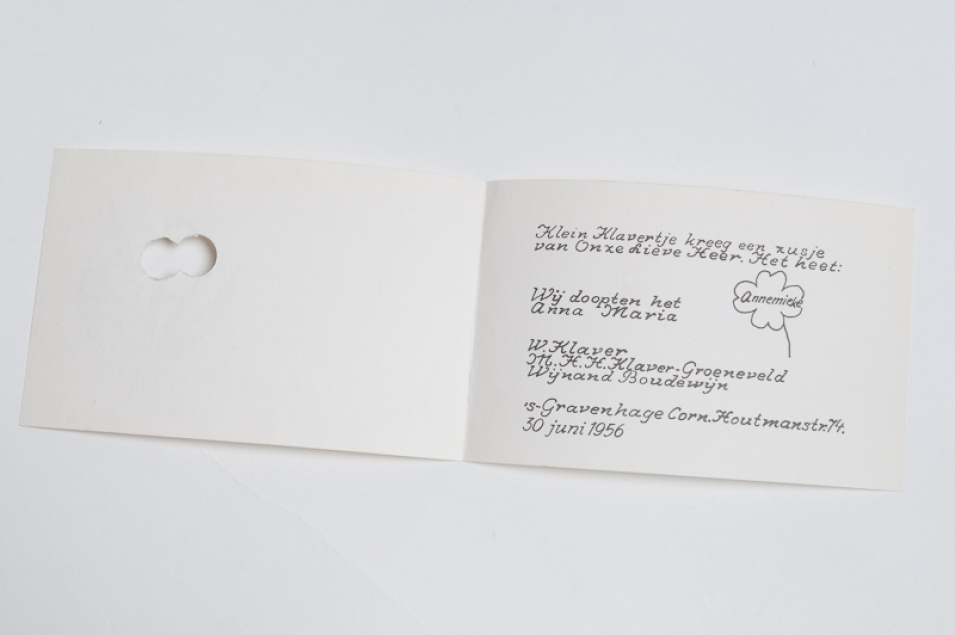 Klein Klavertje kreeg een zusje
van Onze Lieve Heer. Het heet:
Annemieke
Wij doopten het
Anna Maria
W. Klaver
M.H.H. Klaver-Groeneveld
Wijnand Boudewijn
's-Gravenhage Corn. Houtmanstr. 74.
30 juni 1956